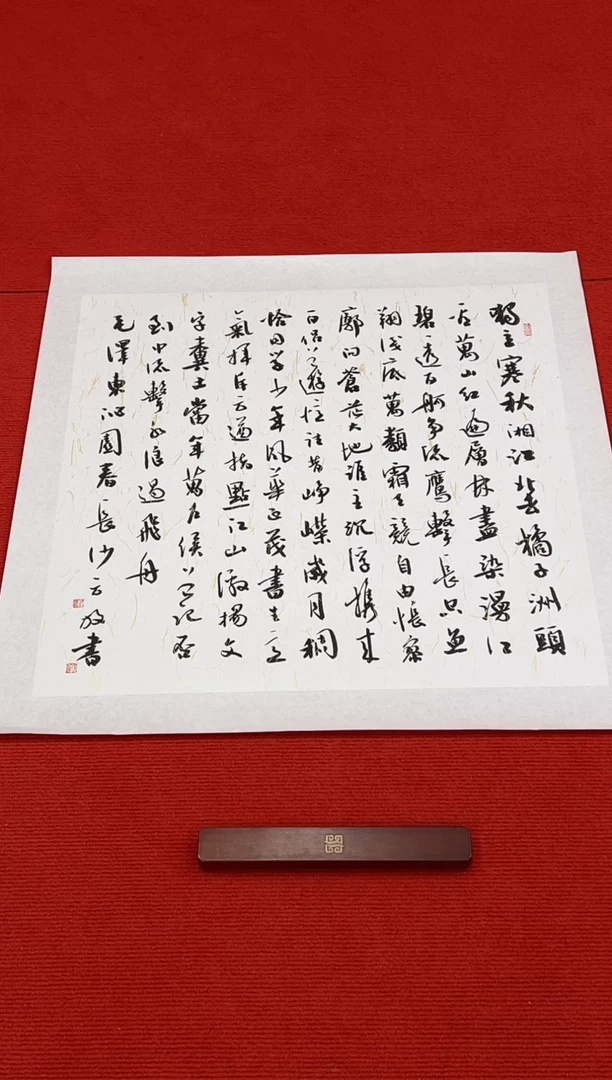 獨立寒秋湘江北去橘子洲頭
看萬山紅遍層林盡染漫江
碧透百舸爭流鷹擊長空魚
翔淺底萬類霜天競自由悵寥
廓問蒼茫大地誰主沉浮攜來
百侶曾遊憶往昔崢嶸歲月稠
恰同學少年風華正茂書生意
氣揮斥方遒指點江山激揚文
字糞土當年萬戶侯曾記否
到中流擊水浪遏飛舟
毛澤東沁園春長沙云放書